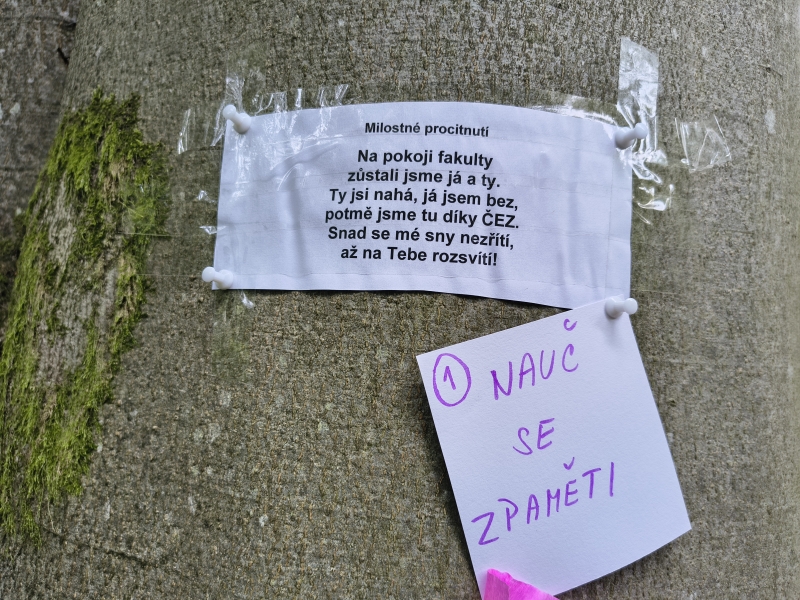 Milostné procitnutí
Na pokoji fakulty
zůstali jsme já a ty.
Ty jsi nahá, já jsem bez,
potmě jsme tu díky ČEZ.
Snad se mé sny nezřítí,
až na Tebe rozsvítí!
1 NAUČ
SE
ZPAMĚTI